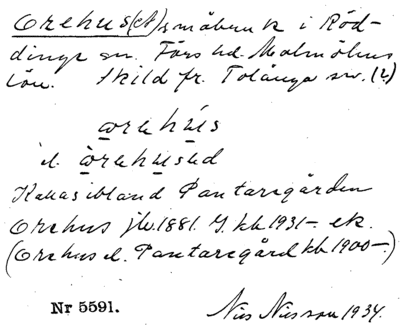 Orehus(et) småbruk i Röd-
dinge sn. Färs hd. Malmöhus
län. Skild fr. Tolånga sn. (2)
orehus
el. orehused
Kallas ibland Pantaregården
Orehus jb. 1881. kb 1931-. ek.
(Orehus el. Pantaregård kb 1900-.)
Nr 5591.
Nils Nilsson 1934.